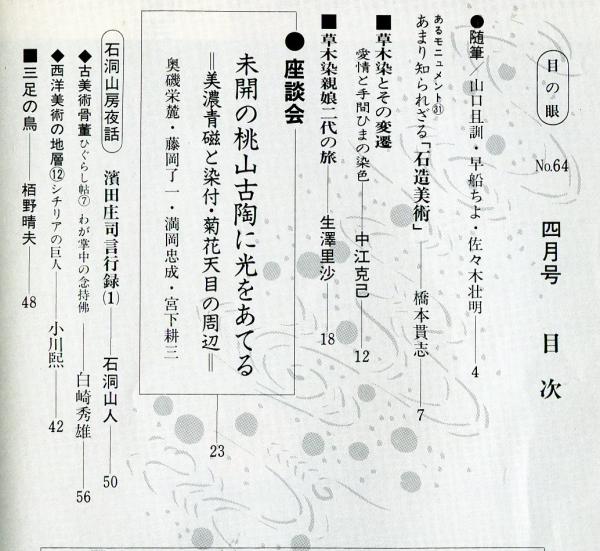 目の眼 No.64 四月号 目次
●随筆／山口且訓・早船ちよ・佐々木壮明 4
あるモニュメント㉛
あまり知られざる「石造美術」 橋本貫志 7
■草木染とその変遷
愛情と手間ひまの染色 中江克己 12
■草木染親娘二代の旅 生澤里沙 18
●座談会
未開の桃山古陶に光をあてる
＝美濃青磁と染付・菊花天目の周辺＝
奥磯栄麓・藤岡了一・満岡忠成・宮下耕三
23
石洞山房夜話 濱田庄司言行録(1) 石洞山人 50
◆古美術骨董ひぐらし帖⑦ わが掌中の念持佛 白崎秀雄 56
◆西洋美術の地層⑫シチリアの巨人 小川煕 42
■三足の鳥 栢野晴夫 48